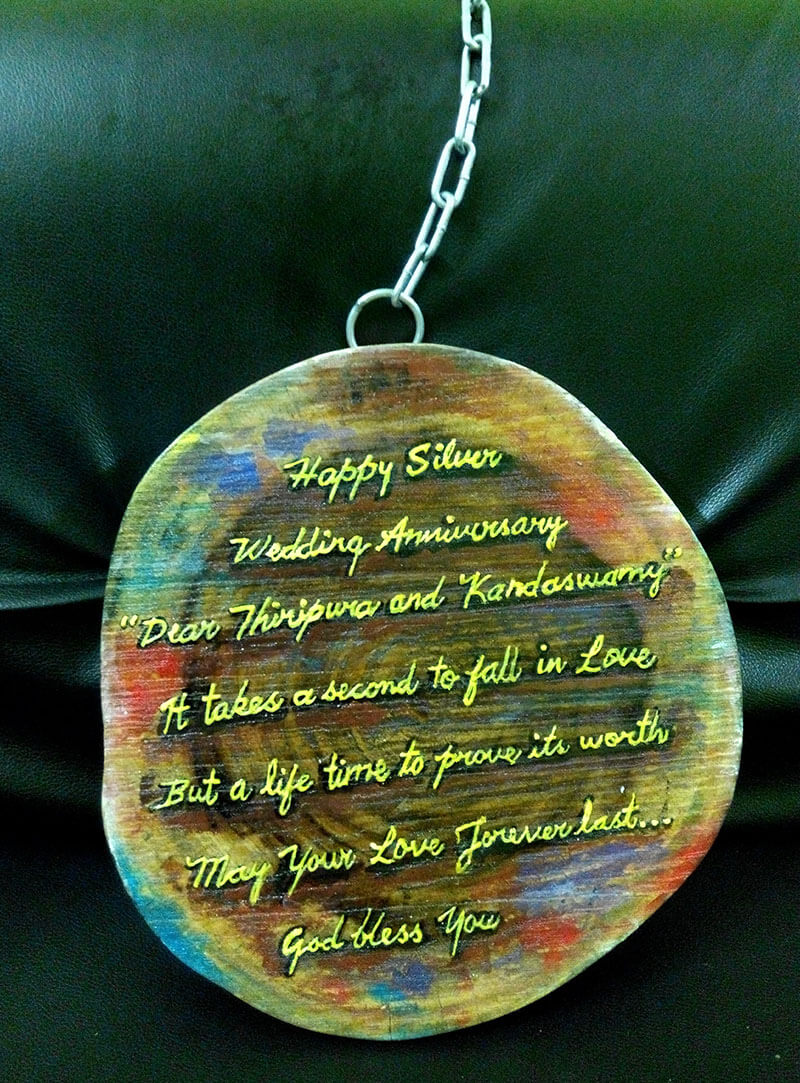 Happy Silver
Wedding Anniversary
"Dear Thiripura and Kandaswamy"
It takes a second to fall in Love
But a life time to prove its worth
May Your Love Forever last...
God bless You